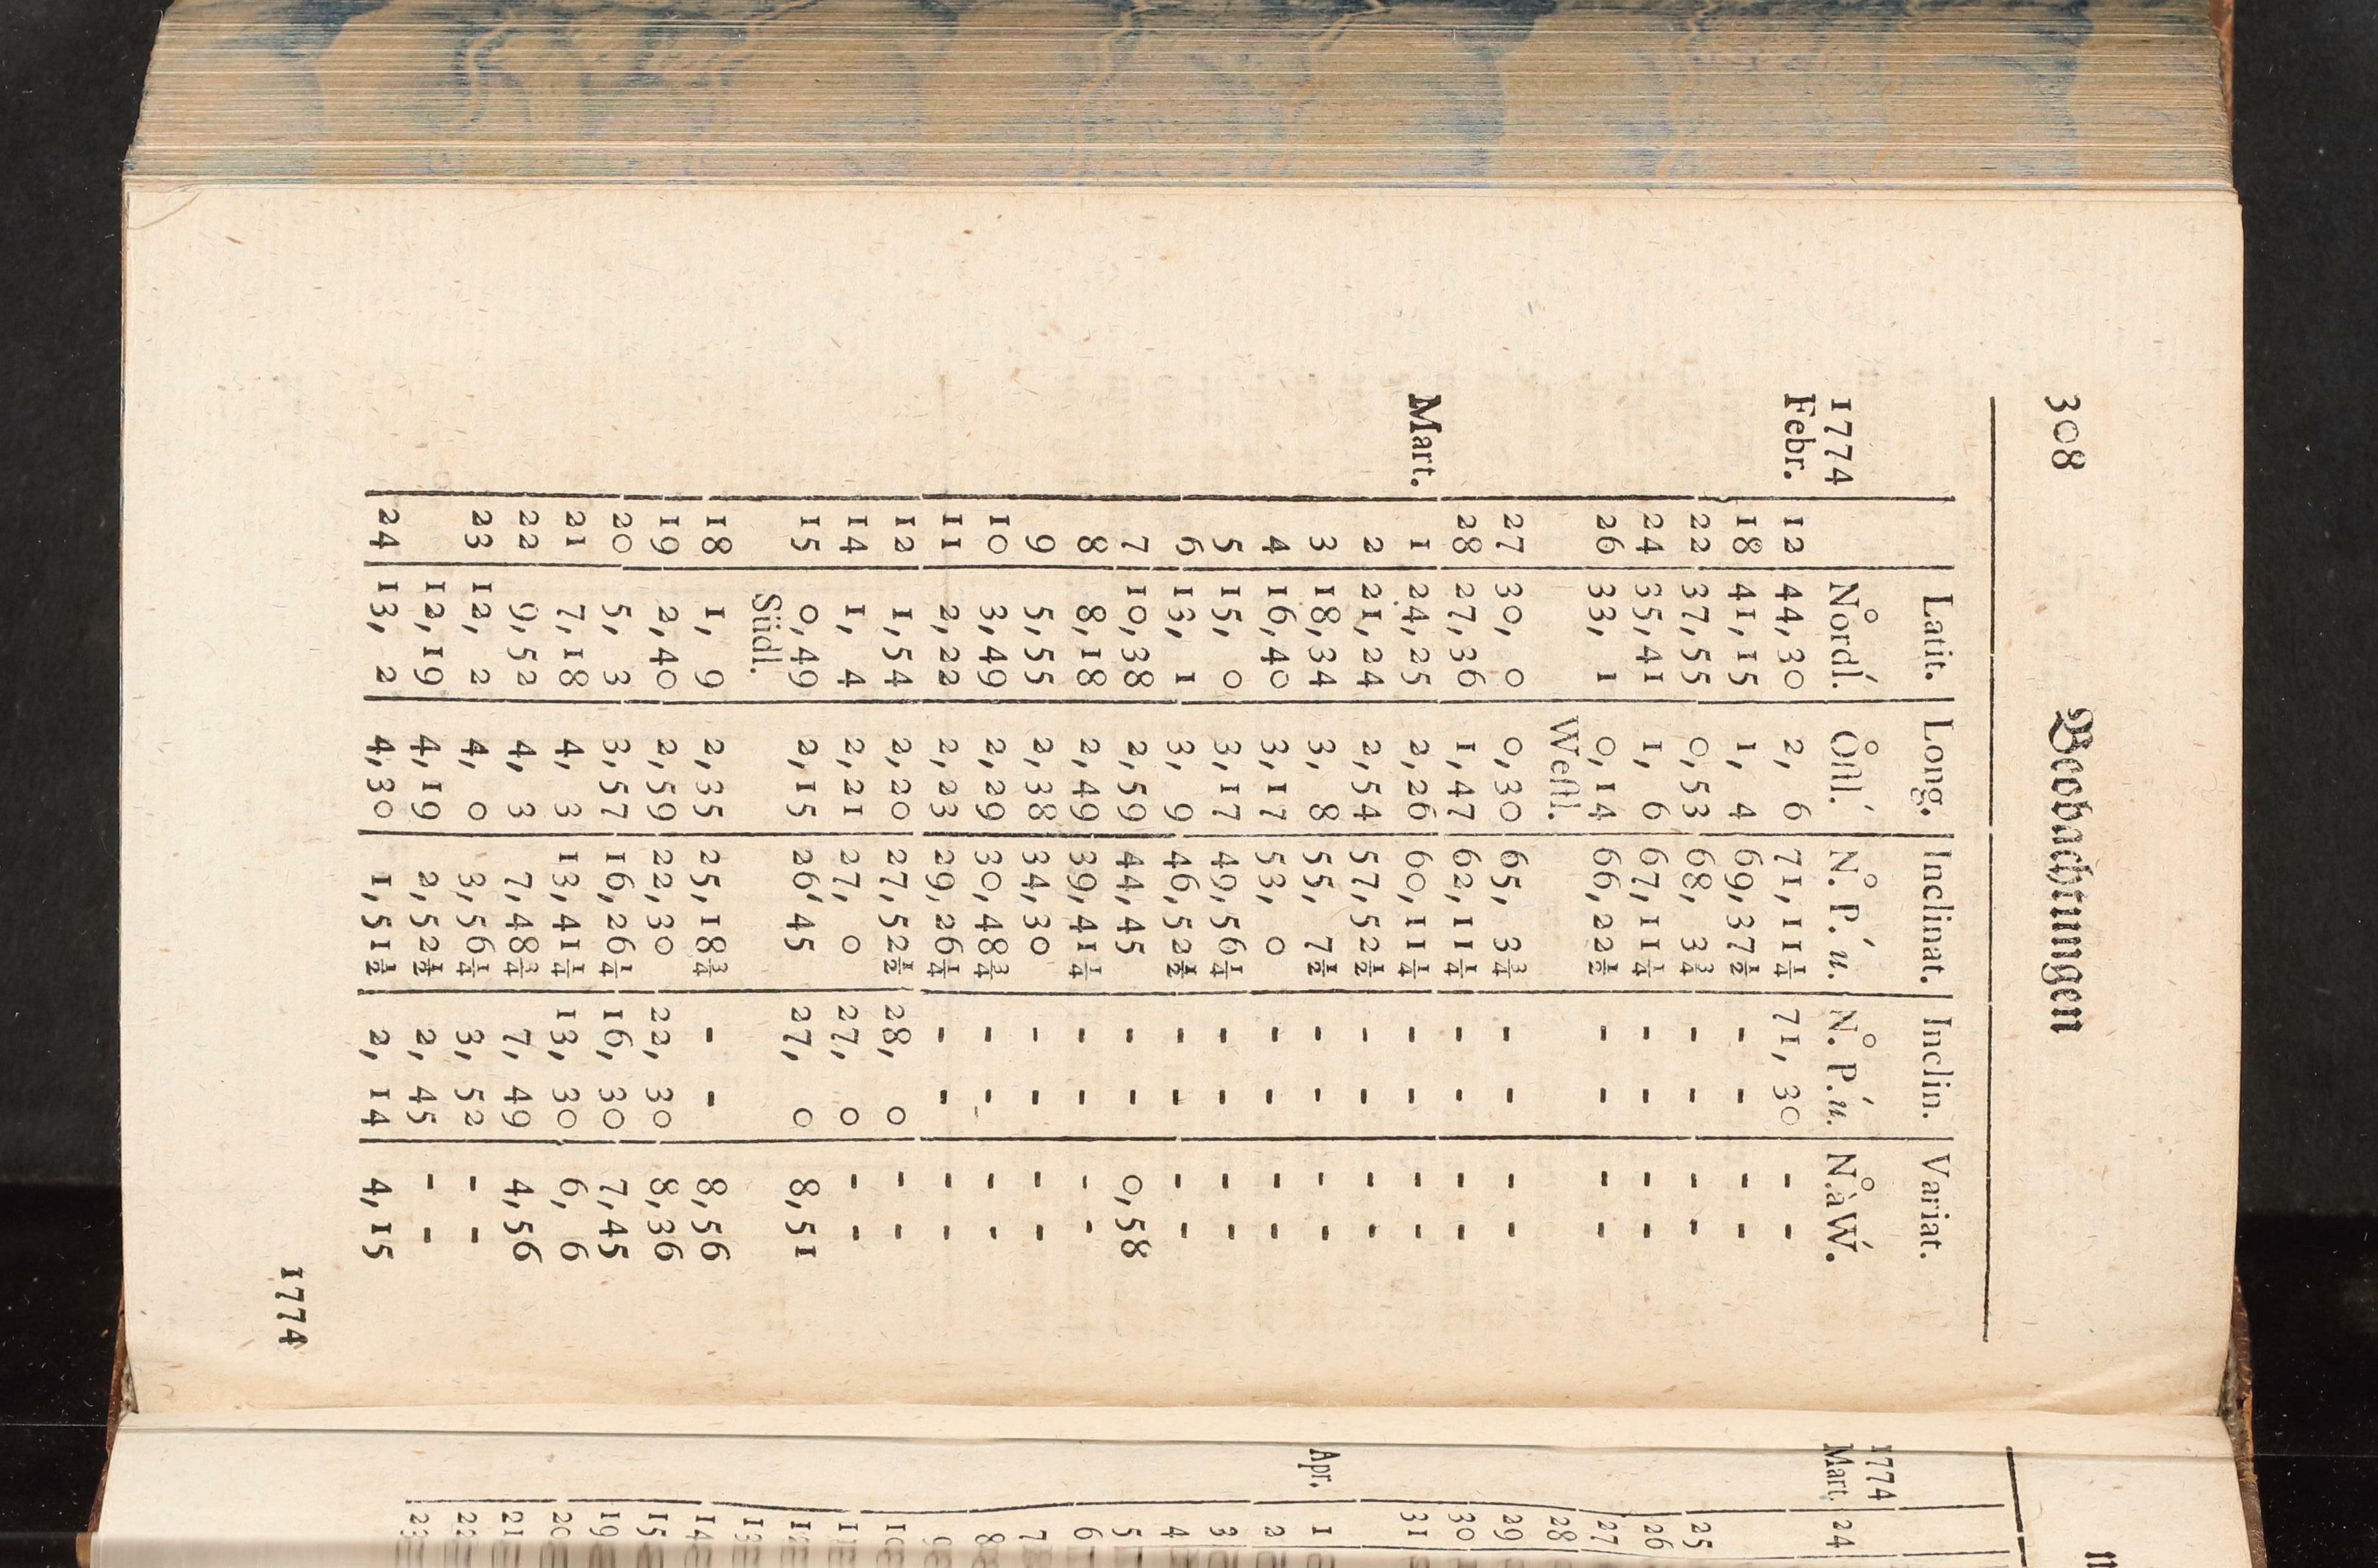 308 Beobachtungen
Latit. Long. Inclinat. Inclin. Variat.
1774 Nördl. Östl. N. P. u. N. P. u. N. à W.
Febr. 12 44,30 2, 6 71,11¼ 71, 30 - -
18 41,15 1, 4 69,37½ - - - -
22 37,55 0,53 68, 3¾ - - - -
24 35,41 1, 6 67,11¼ - - - -
26 33, 1 0,14 66,22½ - - - -
Westl.
27 30, 0 0,30 65, 3¾ - - - -
28 27,36 1,47 62,11¼ - - - -
Mart. 1 24,25 2,26 60,11¼ - - - -
2 21,24 2,54 57,52½ - - - -
3 18,34 3, 8 55, 7½ - - - -
4 16,40 3,17 53, 0 - - - -
5 15, 0 3,17 49,56¼ - - - -
6 13, 1 3, 9 46,52½ - - - -
7 10,38 2,59 44,45 - - 0,58
8 8,18 2,49 39,41¼ - - - -
9 5,55 2,38 34,30 - - - -
10 3,49 2,29 30,48¾ - - - -
11 2,22 2,23 29,26¼ - - - -
12 1,54 2,20 27,52½ 28, 0 - -
14 1, 4 2,21 27, 0 27, 0 - -
15 0,49 2,15 26,45 27, 0 8,51
Südl.
18 1, 9 2,35 25,18¾ - - 8,56
19 2,40 2,59 22,30 22, 30 8,36
20 5, 3 3,57 16,26¼ 16, 30 7,45
21 7,18 4, 3 13,41¼ 13, 30 6, 6
22 9,52 4, 3 7,48¾ 7, 49 4,56
23 12, 2 4, 0 3,56¼ 3, 52 - -
12,19 4,19 2,52½ 2, 45 - -
24 13, 2 4,30 1,51½ 2, 14 4,15
1774
1774
Mart. 24
25
26
27
28
29
30
31
Apr. 1
2
3
4
5
6
7
8
9
10
11
12
13
14
15
19
20
21
22
23